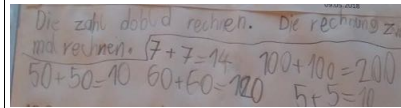 09.05.2018
Die zahl dobld rechnen. Die rechnung zwei
mal rechnen. 7+7=14 100+100=200
50+50=10 60+60=120
5+5=10